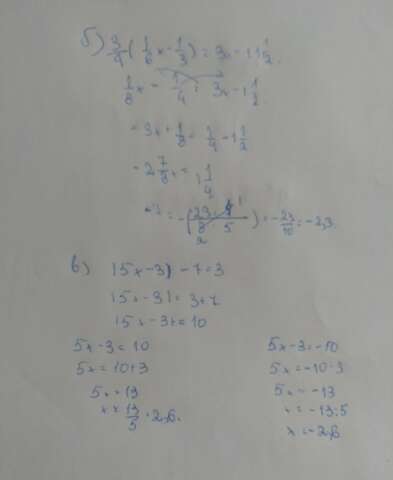 б) 3/4 (1/6 x - 1/3) = 3x - 11 1/2.
1/8 x - 1/4 = 3x - 1 1/2
- 3x + 1/8 = 1/4 - 1 1/2
- 2 7/8 x = 1 1/4
= - (23 · 4 1 / 8 · 5 2) = - 23/10 = - 2,3.
в) |5x - 3| - 7 = 3
|5x - 3| = 3 + 7
|5x - 3| = 10
5x - 3 = 10
5x = 10 + 3
5x = 13
x = 13/5 = 2,6.
5x - 3 = -10
5x = -10 + 3
5x = -13
x = -13 : 5
x = -2,6.